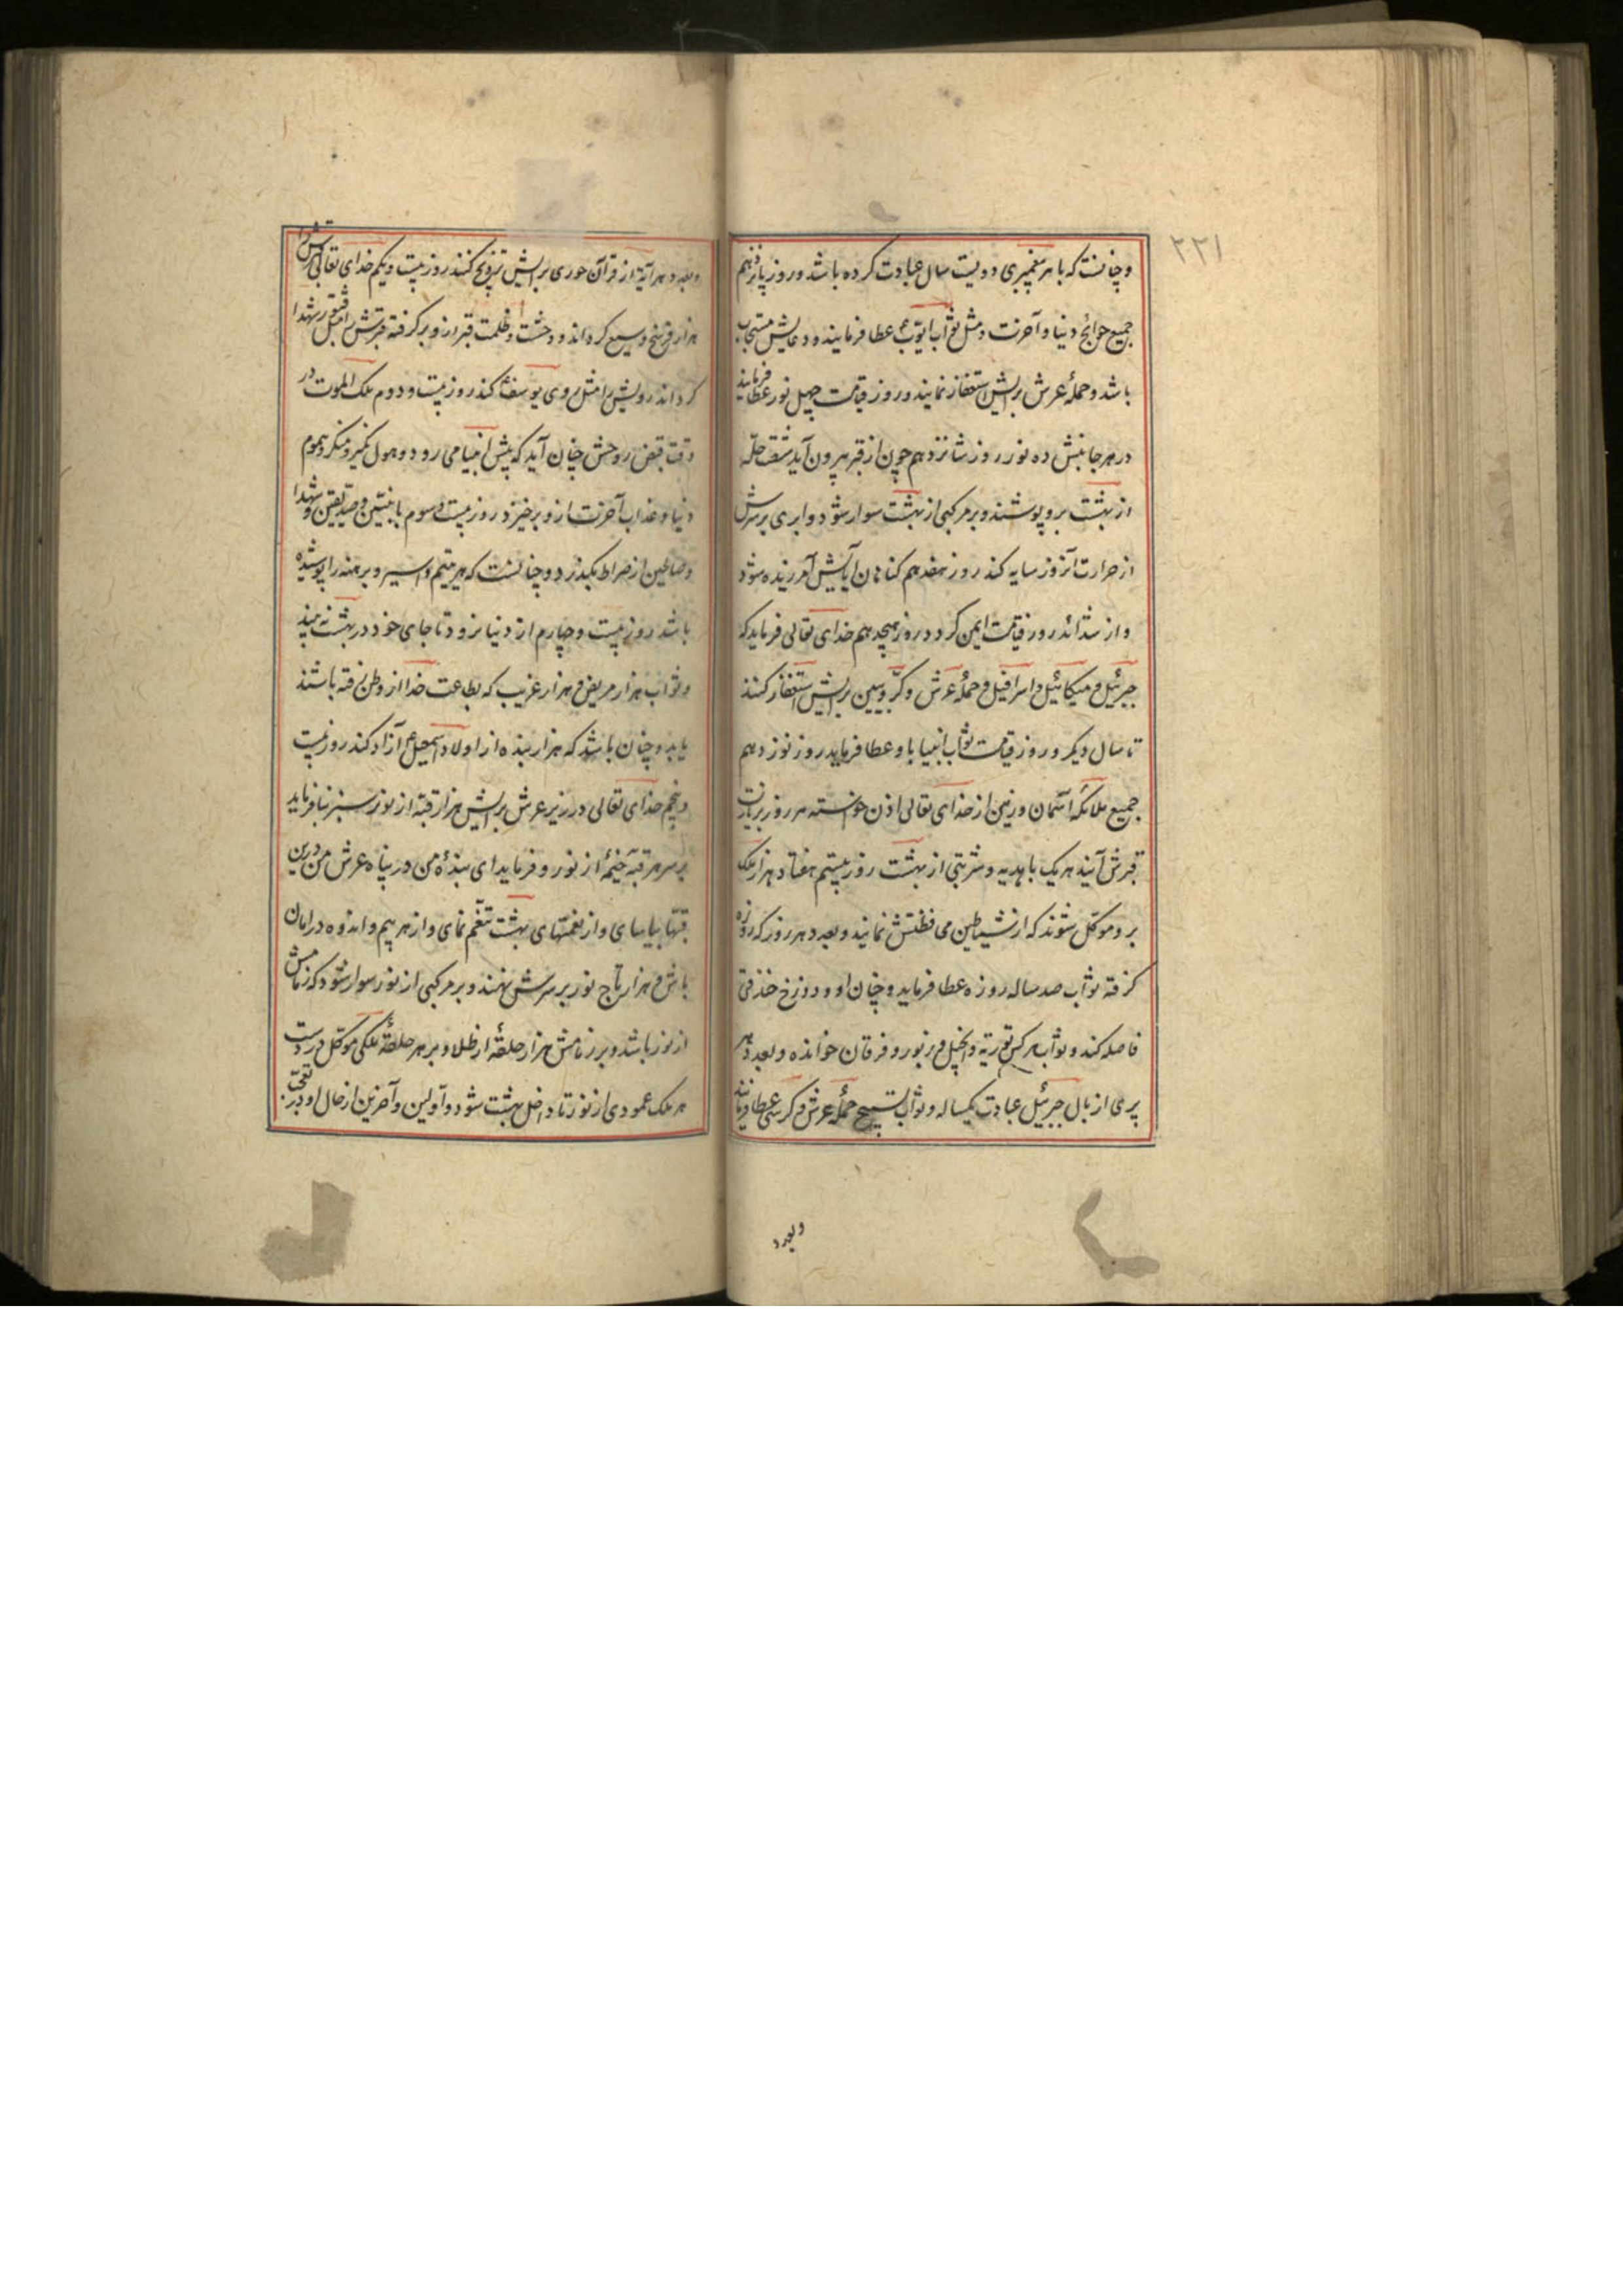 ۲۲۱
و چنانست که با هر پیغمبری دویست سال عبادت کرده باشد و روز پانزدهم
جمیع حوائج دنیا و آخرت و مثل ثواب ایوب ع عطا فرمایند و دعایش مستجاب
باشد و حملهٔ عرش برایش استغفار نمایند و روز قیامت چهل نور عطا فرمایند
در هر جانبش ده نور روز شانزدهم چون از قبر بیرون آید شصت حلّه
از بهشت برو پوشند و بر مرکبی از بهشت سوار شود و ابری بر سرش
از حرارت آنروز سایه کند روز هفدهم کناهان آبایش آمرزیده شود
و از شدائد روز قیامت ایمن کردد روز هیجدهم خدای تعالی فرماید که
جبرئیل و میکائیل و اسرافیل و حملهٔ عرش و کرّوبیین برایش استغفار کنند
تا سال دیگر و روز قیامت ثواب انبیا باو عطا فرماید روز نوزدهم
جمیع ملائکه آسمان و زمین از خدای تعالی اذن خواسته هر روز بزیارت
قبرش آیند هر یک با هدیه و شربتی از بهشت روز بیستم هفتاد هزار ملک
برو موکّل شوند که از شیاطین محافظتش نمایند و بعدد هر روز که روزه
کرفته ثواب صد ساله روزه عطا فرماید و چنان او و دوزخ خندقی
فاصله کند و ثواب هر کس توریة و انجیل و زبور و فرقان خوانده و بعدد هر
پری از بال جبرئیل عبادت یکساله و ثواب تسبیح حملهٔ عرش و کرسی عطا فرمایند
وبعدد
وبعدد هر آیة از قرآن حوری برایش تزویج کنند روز بیست و یکم خدای تعالی قبرش را
هزار فرسخ وسیع کرداند و وحشت و ظلمت قبر ازو بر کرفته قبرش را مثل قبور شهدا
کرداند رویش را مثل روی یوسف کند روز بیست و دوم ملک الموت در
وقت قبض روحش چنان آید که پیش انبیا می رود و هول نکیر و منکر و هموم
دنیا و عذاب آخرت ازو برخیزد روز بیست و سوم با نبیّین و صدّیقین و شهدا
و صالحین از صراط بکذرد و چنانست که هر یتیم و اسیر و برهنه را پوشیده
باشد روز بیست و چهارم از دنیا نرود تا جای خود در بهشت نه بیند
و ثواب هزار مریض و هزار غریب که بطاعت خدا از وطن رفته باشند
یابد و چنان باشد که هزار بنده از اولاد اسمعیل ع آزاد کند روز بیست
و پنجم خدای تعالی در زیر عرش برایش هزار قبّه از نور سبز بنا فرماید
بر سر هر قبّه خیمهٔ از نور و فرماید ای بندهٔ من در پناه عرش من درین
قبّها بیاسای و از نعمتهای بهشت تنعّم نمای و از هر بیم و اندوه در امان
باش و هزار تاج نور بر سرش نهند و بر مرکبی از نور سوار شود که زمامش
از نور باشد و بر زمامش هزار حلقهٔ از طلا و بر هر حلقهٔ ملکی موکّل در دست
هر ملک عمودی از نور تا داخل بهشت شود و اوّلین و آخرین از حال او در تعجّب